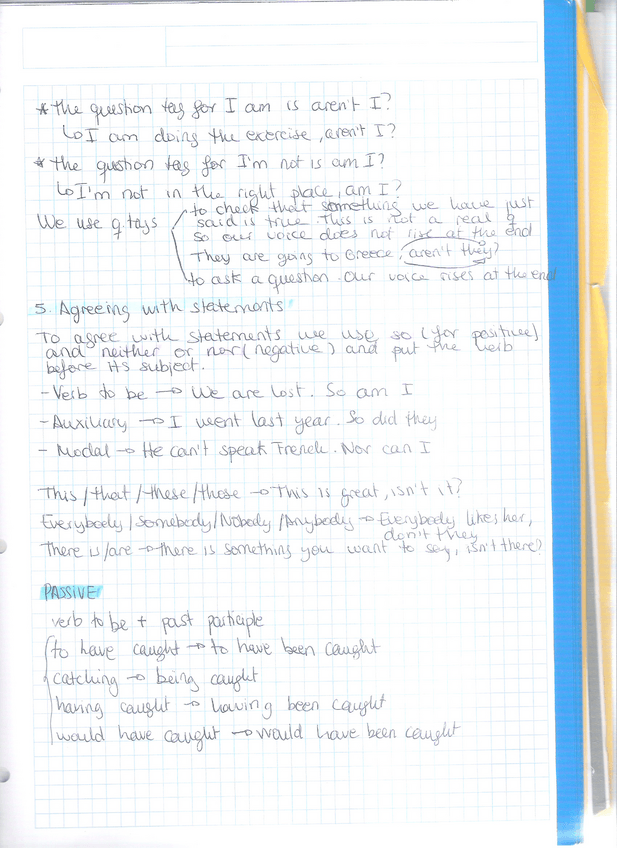 * The question tag for I am is aren't I?
↳ I am doing the exercise, aren't I?
* the question tag for I'm not is am I?
↳ I'm not in the right place, am I?
We use q. tags
to check that something we have just
said is true. This is not a real q
so our voice does not rise at the end
They are going to Greece, aren't they?
to ask a question. Our voice rises at the end
5. Agreeing with statements
To agree with statements we use so (for positive)
and neither or nor (negative) and put the verb
before its subject.
- Verb to be → We are lost. So am I
- Auxiliary → I went last year. So did they
- Modal → He can't speak French. Nor can I
This / that / these / those → This is great, isn't it?
Everybody / Somebody / Nobody / Anybody → Everybody likes her,
don't they
There is / are → there is something you want to say, isn't there?
PASSIVE
verb to be + past participle
to have caught → to have been caught
catching → being caught
having caught → having been caught
would have caught → would have been caught